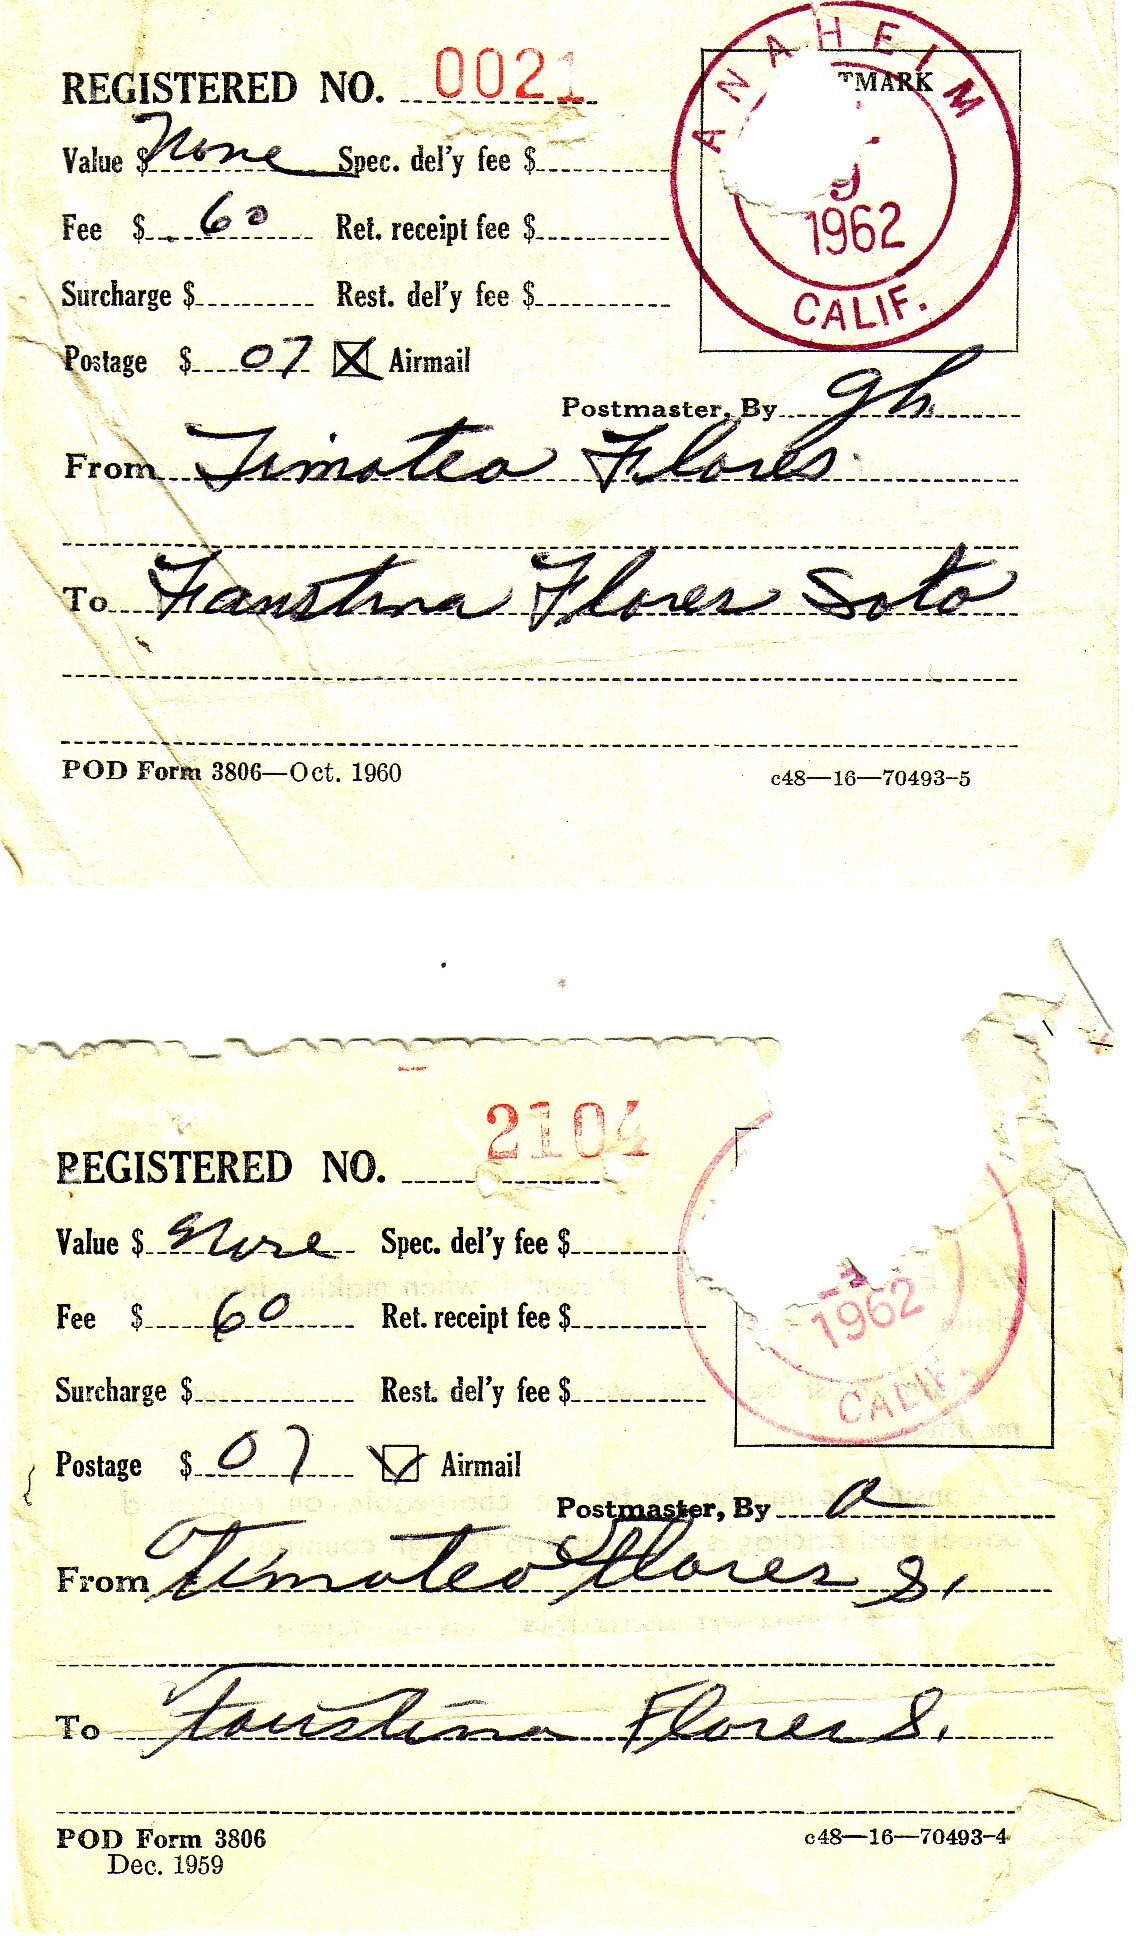 REGISTERED NO. 0021
ANAHEIM
TMARK
Value $ None Spec. del'y fee $
Fee $ .60 Ret. receipt fee $
1962
Surcharge $ Rest. del'y fee $
CALIF.
Postage $ 07 Airmail
Postmaster, By gh
From Timoteo Flores
To Faustina Flores Soto
POD Form 3806—Oct. 1960 c48—16—70493-5
2104
REGISTERED NO.
Value $ None Spec. del'y fee $
Fee $ 60 Ret. receipt fee $
1962
Surcharge $ Rest. del'y fee $
CALIF.
Postage $ 07 Airmail
Postmaster, By a
From Timoteo Flores S.
To Faustina Flores S.
POD Form 3806 c48—16—70493-4
Dec. 1959